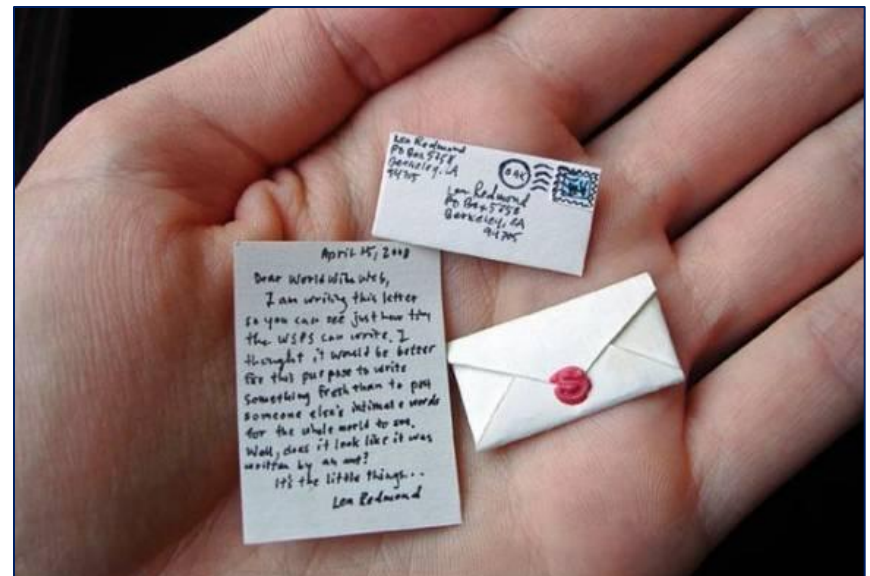 Lea Redmond
PO Box 5258
Berkeley, CA
94705
OAK
Lea Redmond
PO Box 5258
Berkeley, CA
94705
April 15, 2008
Dear World Wide Web,
I am writing this letter
so you can see just how tiny
the WSPS can write. I
thought it would be better
for this purpose to write
something fresh than to post
someone else's intimate words
for the whole world to see.
Well, does it look like it was
written by an ant?
It's the little things...
Lea Redmond